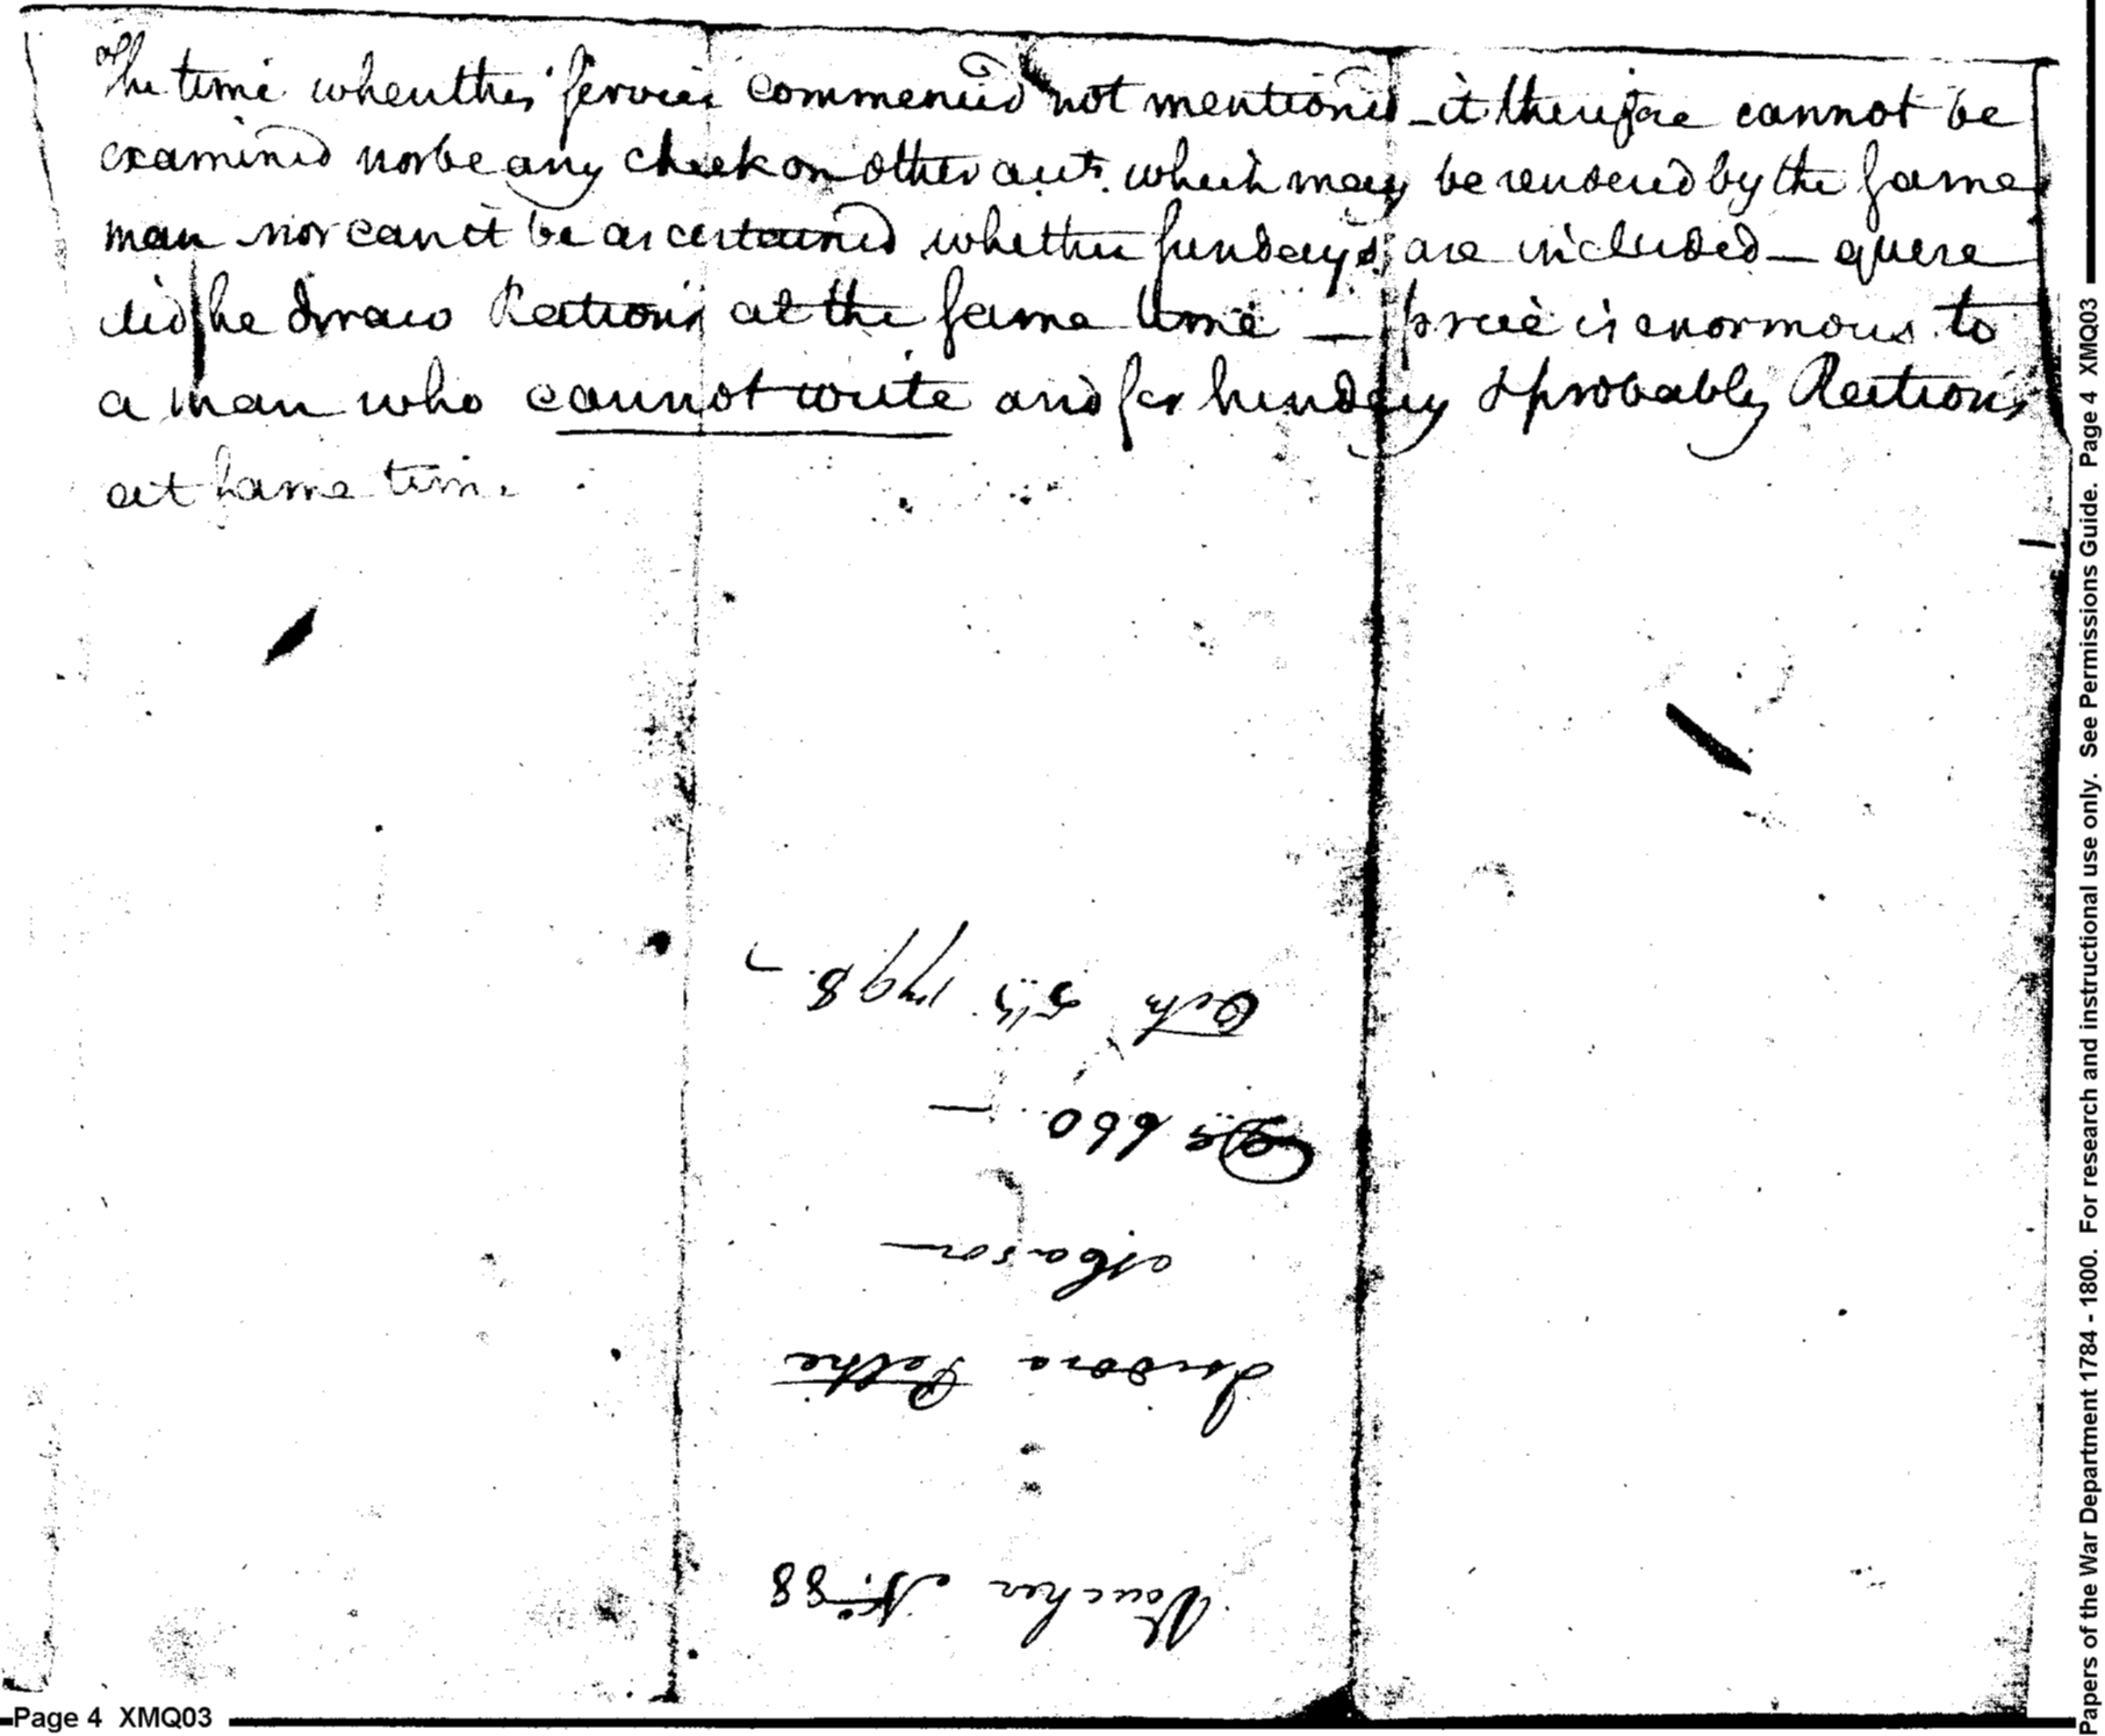 The time when this service commenced not mentioned - it therefore cannot be
examined nor be any check on other accts. which may be rendered by the same
man nor can it be ascertained whether sundays are included - quere
did he draw Rations at the same time - price is enormous to
a man who cannot write and for sundays & probably Rations
at same time
Voucher No. 88
Isidore Peltier
Mason
Drs 660.-
Octr 5th 1798.-
Page 4 XMQ03
Papers of the War Department 1784 - 1800. For research and instructional use only. See Permissions Guide. Page 4 XMQ03